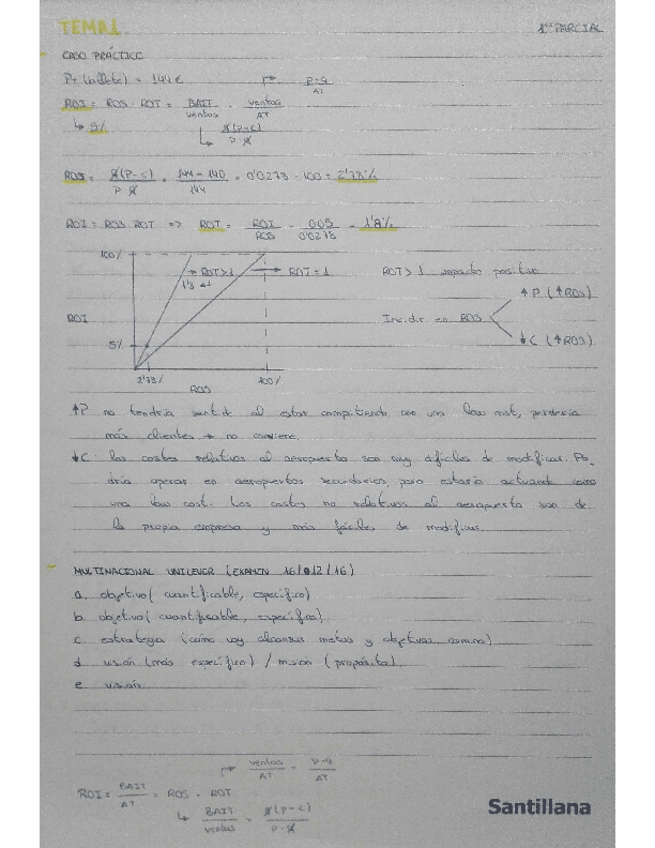 TEMA 1
1er PARCIAL
CASO PRÁCTICO
P+ (billete) = 144 €
P·Q / AT
ROI = ROS · ROT = BAIT / ventas · ventas / AT
↳ 5%
↳ Q(P-C) / P·Q
ROS = Q(P-C) / P·Q = 144 - 140 / 144 = 0'0278 · 100 = 2'78%
ROI = ROS · ROT => ROT = ROI / ROS = 0'05 / 0'0278 = 1'8%
100%
→ ROT > 1
→ ROT = 1
ROT > 1 impacto positivo
↑ P (↑ROS)
ROI
Incidir en ROS
5%
↓ C (↑ROS)
2'78%
100%
ROS
↑P no tendría sentido al estar compitiendo con una low cost, perdería
más clientes → no conviene.
↓C: los costes relativos al aeropuerto son muy difíciles de modificar. Po
dría operar en aeropuertos secundarios, pero estaría actuando como
una low cost. Los costes no relativos al aeropuerto son de
la propia empresa y más fáciles de modificar.
MULTINACIONAL UNILEVER (EXAMEN 16/012/16)
a. objetivo (cuantificable, específico)
b. objetivo (cuantificable, específico)
c. estrategia (cómo voy alcanzar metas y objetivos, camino)
d. visión (más específico) / misión (propósito)
e. visión
ventas / AT = P·Q / AT
ROI = BAIT / AT = ROS · ROT
↳ BAIT / ventas = Q(P-C) / P·Q
Santillana